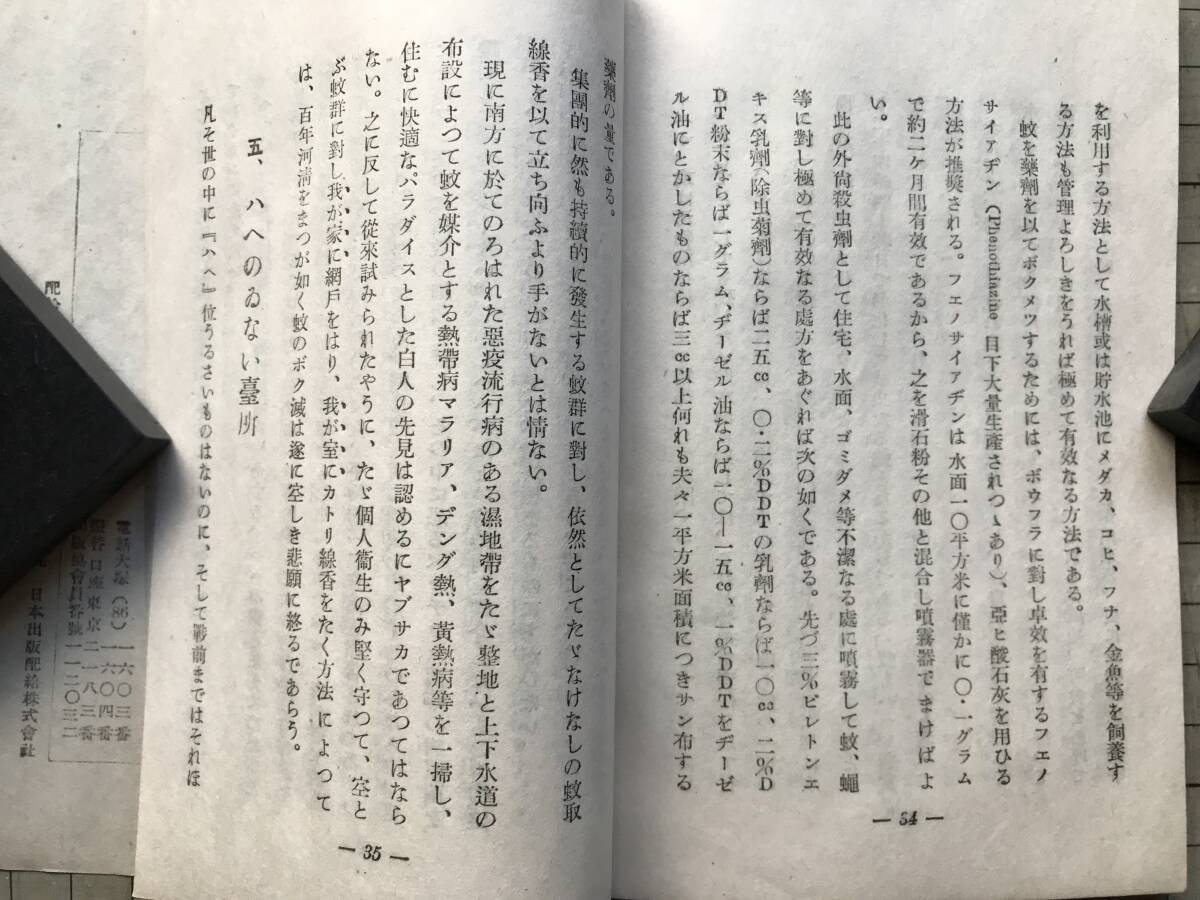 を利用する方法として水槽或は貯水池にメダカ、コヒ、フナ、金魚等を飼養す
る方法も管理よろしきをうれば極めて有效なる方法である。
蚊を藥劑を以てボクメツするためには、ボウフラに對し卓效を有するフェノ
サイアヂン（Phenothiazine 目下大量生產されつゝあり）、亞ヒ酸石灰を用ひる
方法が推奬される。フェノサイアヂンは水面一〇平方米に僅かに〇・一グラム
で約二ケ月間有效であるから、之を滑石粉その他と混合し噴霧器でまけばよ
い。
此の外尙殺虫劑として住宅、水面、ゴミダメ等不潔なる處に噴霧して蚊、蠅
等に對し極めて有效なる處方をあぐれば次の如くである。先づ三％ピレトンエ
キス乳劑（除虫菊劑）ならば二五cc、〇・二％DDTの乳劑ならば一〇cc、二％D
DT粉末ならば一グラム、ヂーゼル油ならば一〇―一五cc、一％DDTをヂーゼ
ル油にとかしたものならば三cc以上何れも夫々一平方米面積につきサン布する
― 34 ―
藥劑の量である。
集團的に然も持續的に發生する蚊群に對し、依然としてたゞなけなしの蚊取
線香を以て立ち向ふより手がないとは情ない。
現に南方に於てのろはれた惡疫流行病のある濕地帶をたゞ整地と上下水道の
布設によつて蚊を媒介とする熱帶病マラリア、デング熱、黃熱病等を一掃し、
住むに快適な、パラダイスとした白人の先見は認めるにヤブサカであつてはなら
ない。之に反して從來試みられたやうに、たゞ個人衞生のみ堅く守つて、空と
ぶ蚊群に對し我が家に網戶をはり、我が室にカトリ線香をたく方法によつて
は、百年河淸をまつが如く蚊のボク滅は遂に空しき悲願に終るであらう。
五、ハへのゐない臺所
凡そ世の中に『ハへ』位うるさいものはないのに、そして戰前まではそれほ
― 35 ―
電話大塚（86）一六〇三番
一六〇四番
振替口座東京二一八三番
版協會員番號一一二〇三二
日本出版配給株式會社
配給